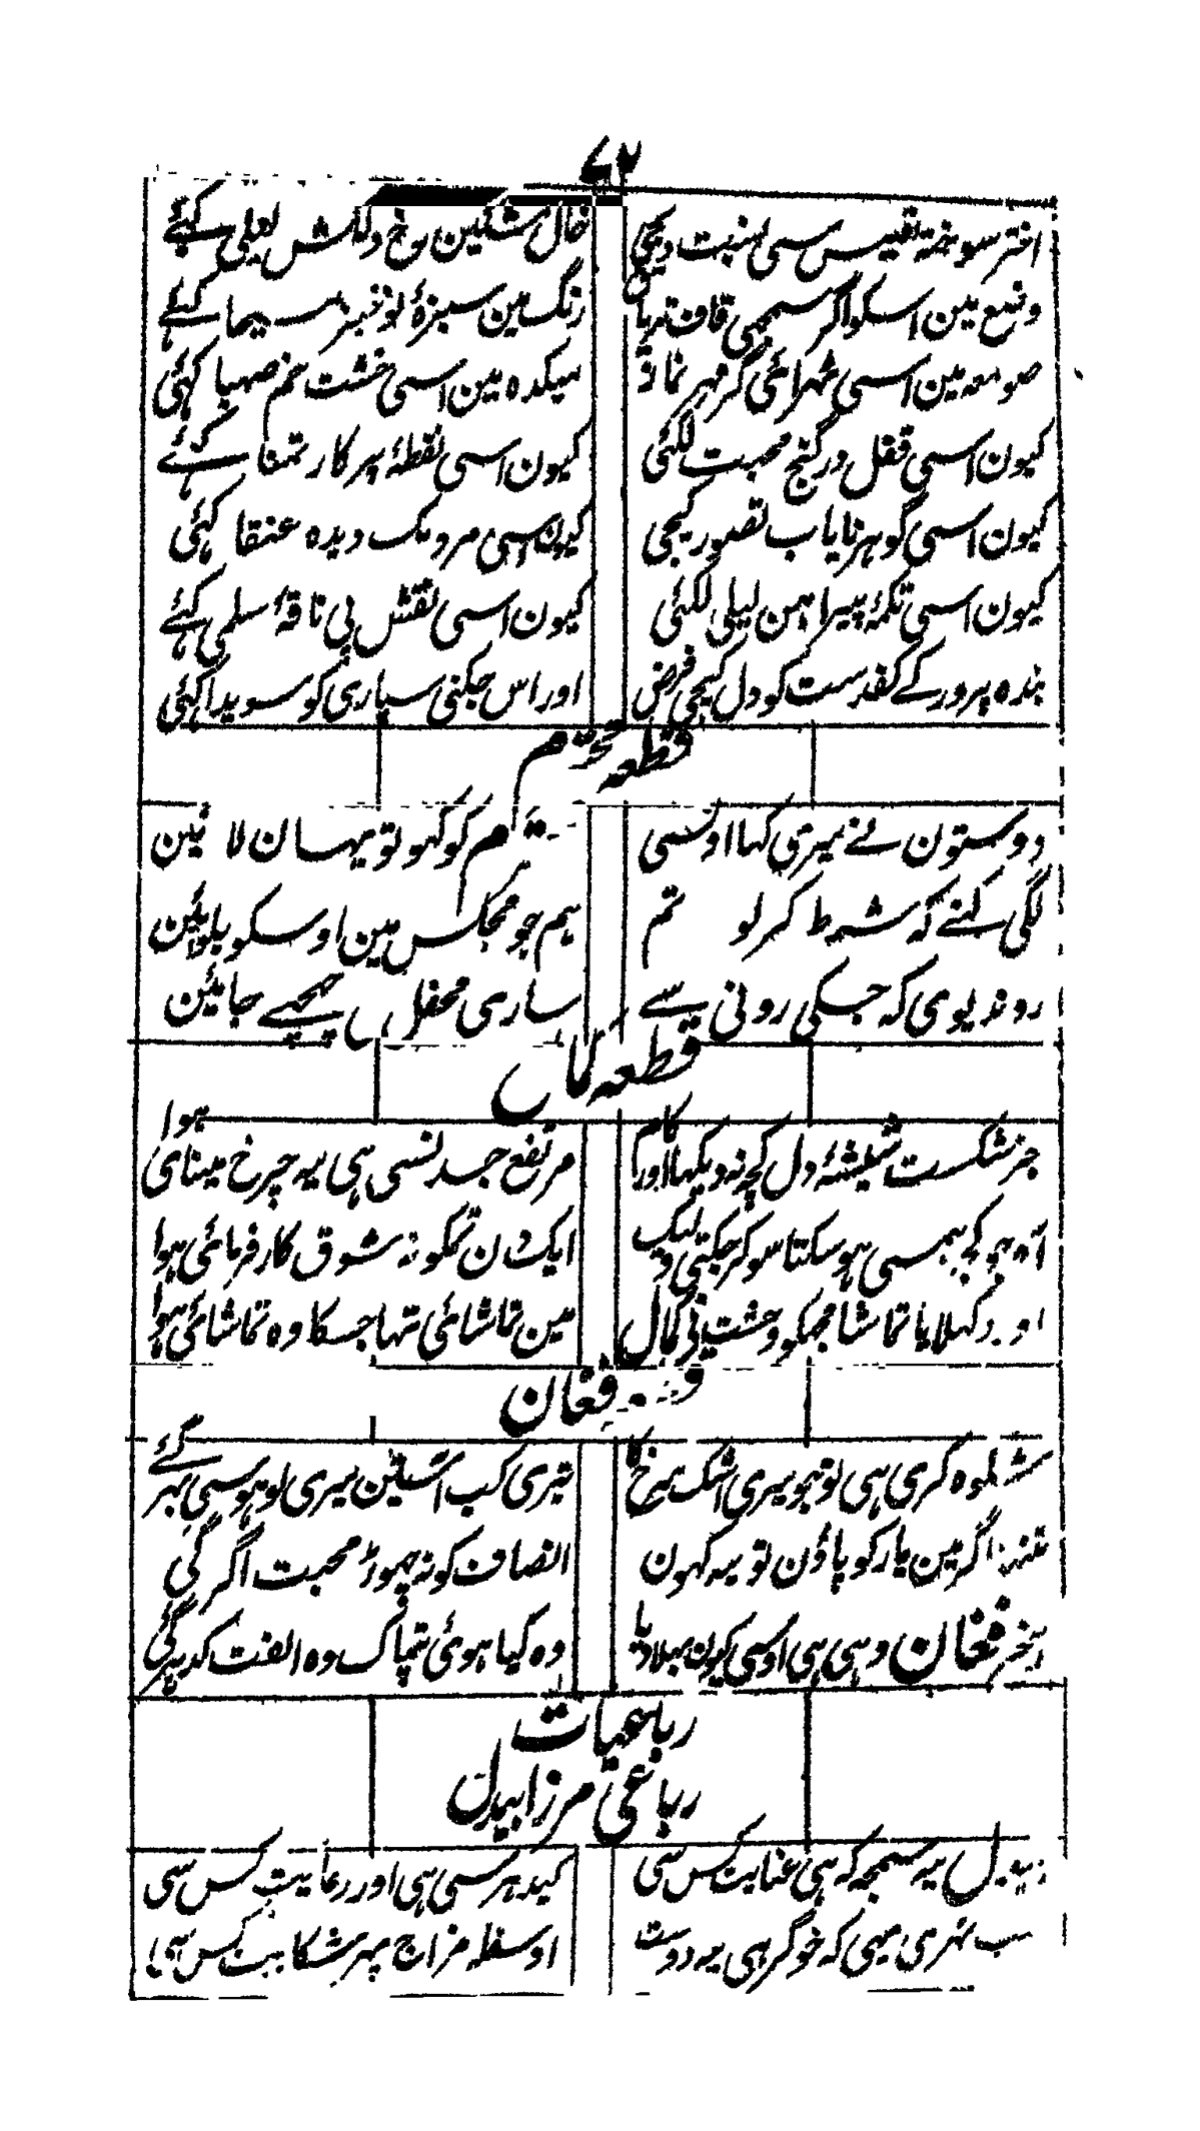 ۷۲
اختر سوختہ قیس سی نسبت دیجی
خال مشکین رخ دلکش لیلی کہئے
وضع مین اسکو اگر سمجہی قاف تریاق
رنگ مین سبزۂ نوخیز مسیحا کہئے
صومعہ مین اسی ٹہرائی گر مہر نماز
میکدہ مین اسی خشت خم صہبا کہئی
کیون اسی قفل در گنج محبت لکہئی
کیون اسی نقطۂ پرکار تمنا کہئے
کیون اسی گوہر نایاب تصور کیجی
کیون اسی مردمک دیدہ عنقا کہئی
کیون اسی تکمۂ پیراہن لیلی لکہئی
کیون اسی نقش پی ناقۂ سلمی کہئے
بندہ پرور کے کفدست کو دل کیجی فرض
اور اس چکنی سپاری کو سویدا کہئی
قطعہ محرم
دوستون نے میری کہا اوسی
محرم کو کہو تو یہان لائین
لگی کہنے کہ شرط کر لو تم
ہم جو مجلس مین اوسکو بلوائین
رو ندیوی کہ جسکی رونی سے
ساری محفل پہچے جائین
قطعہ کمال
جز شکست شیشۂ دل کچہ نہ دیکہا اور کام
مرتفع جدنسی ہی یہ چرخ مینای ہوا
آہ جو کچہ ہمسی ہو سکتا سو کر چکتی ولیک
ایک دن تمکو نہ شوق کار فرمائی ہوا
اور دکہلایا تماشا مجہکو وحشت نی کمال
مین تماشائی تہا جسکا وہ تماشائی ہوا
فغان
شکوہ کری ہی تو جو میری اشک سرخ کا
تیری کب آستین میری لوہو سی بہر گئے
تنہا اگر مین یار کو پاؤن تو یہ کہون
انصاف کو نہ چہوڑ محبت اگر گئی
آخر فغان وہی ہی اوسی کیون بہلا دیا
وہ کیا ہوئی تپاک وہ الفت کدہر گئی
رباعیات
رباعی مرزا بیدل
بیدل یہ سمجہ کہ ہی عنایت کس سی
کید ہر سی ہی اور رعایت کس سی
سب تہری مہی کہ خوگر ہی یہ دوست
او سفلہ مزاج پہر شکایت کس سی